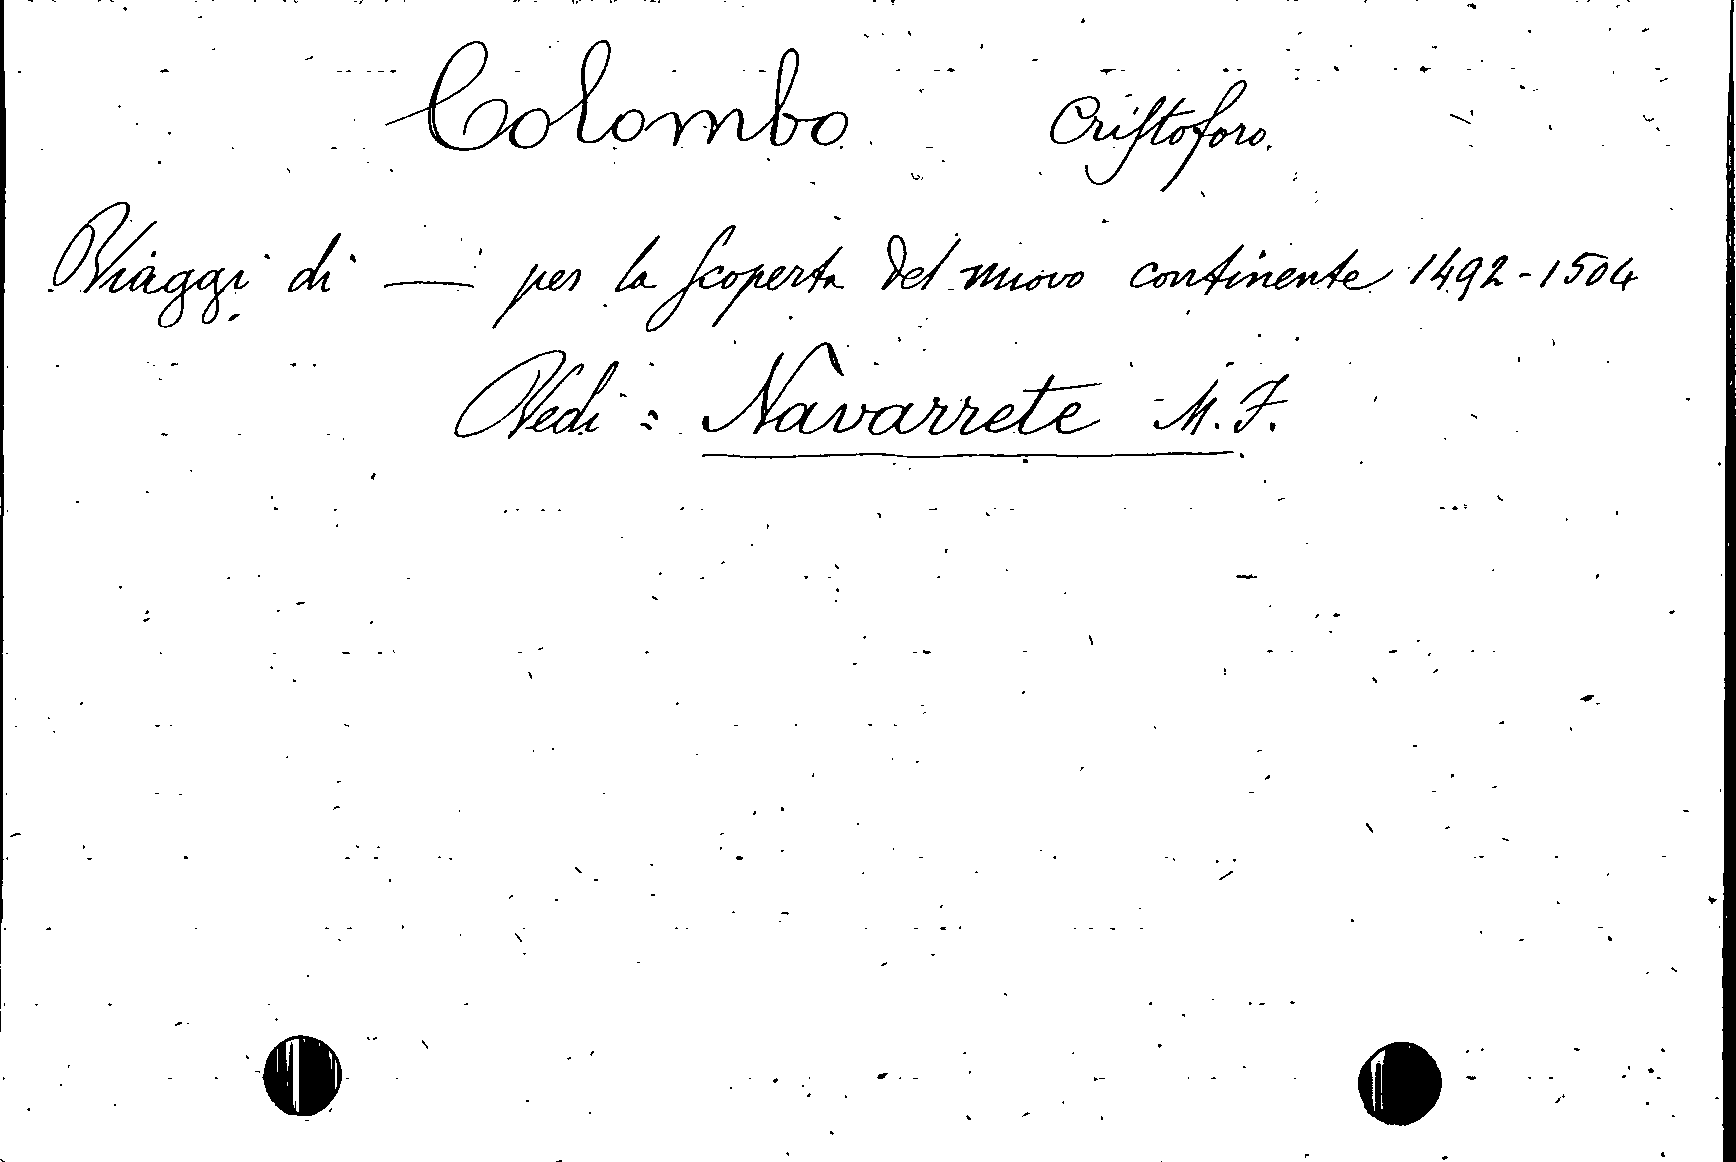 Colombo Cristoforo.
Viaggi di — per la scoperta del nuovo continente 1492-1504
Vedi: Navarrete M. F.